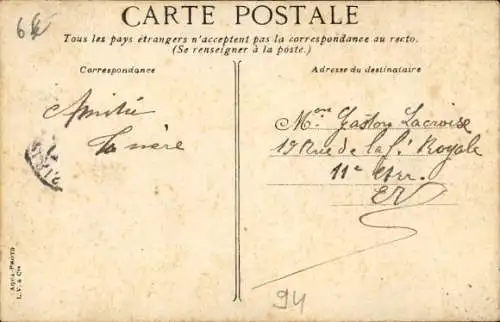 6€
CARTE POSTALE
Tous les pays étrangers n'acceptent pas la correspondance au recto.
(Se renseigner à la poste.)
Correspondance
Adresse du destinataire
Amitié
Ta mère
Mon Gaston Lacroise
19 Rue de la f. Royale
11e
EV
AQUA-PHOTO
L.V. & Cie
94